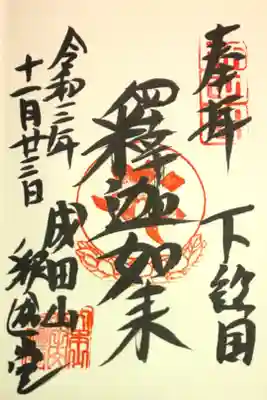 奉拝
下総国
釋迦如来
令和二年
十一月廿三日
成田山
釈迦堂